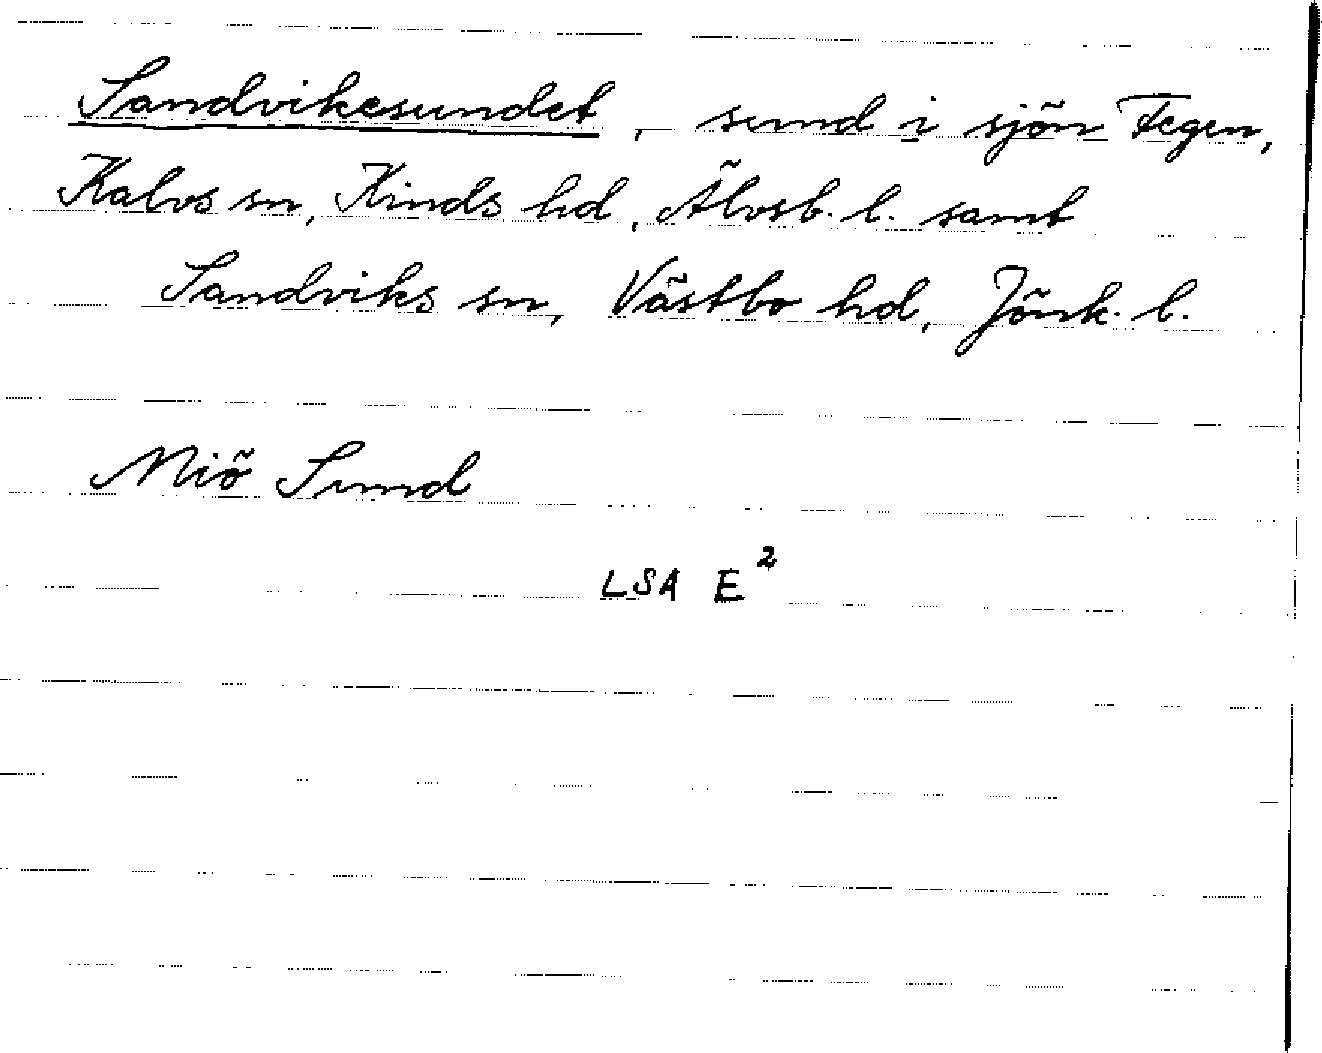 Sandvikesundet, sund i sjön Fegen,
Kalvs sn, Kinds hd, Älvsb. l. samt
Sandviks sn, Västbo hd, Jönk. l.
Niö Sund
LSA E²